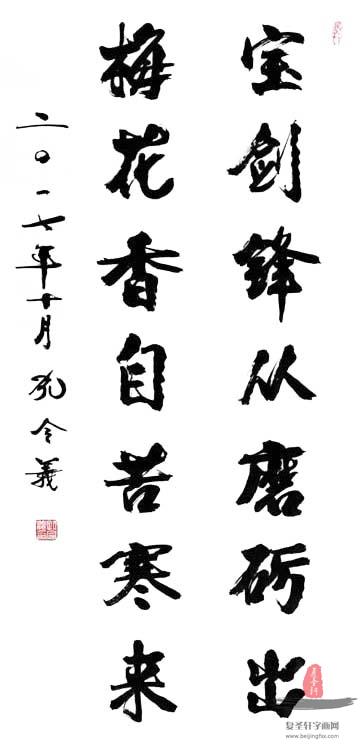 宝剑锋从磨砺出
梅花香自苦寒来
二〇一七年十月 孔令義
复圣轩字画网
www.beijingfsx.com